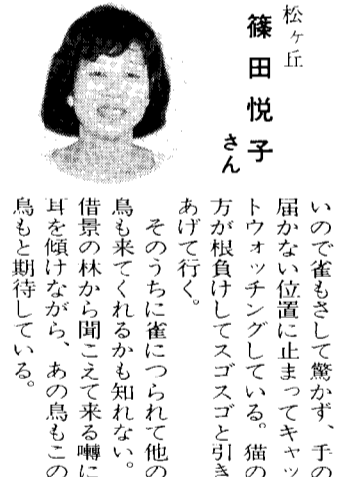 松ヶ丘
篠田悦子
さん
いので雀もさして驚かず、手の
届かない位置に止まってキャッ
トウォッチングしている。猫の
方が根負けしてスゴスゴと引き
あげて行く。
そのうちに雀につられて他の
鳥も来てくれるかも知れない。
借景の林から聞こえて来る囀に
耳を傾けながら、あの鳥もこの
鳥もと期待している。